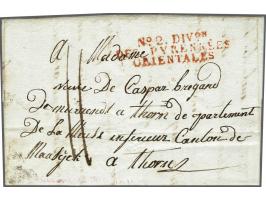 No. 2. DIVon
DES PYRENNÉES
ORIENTALES
A Madame
veuve De Caspar brigand
De meurende a thorn de partement
De La Meuse inferieur Canton de
Maaseijck a thorn